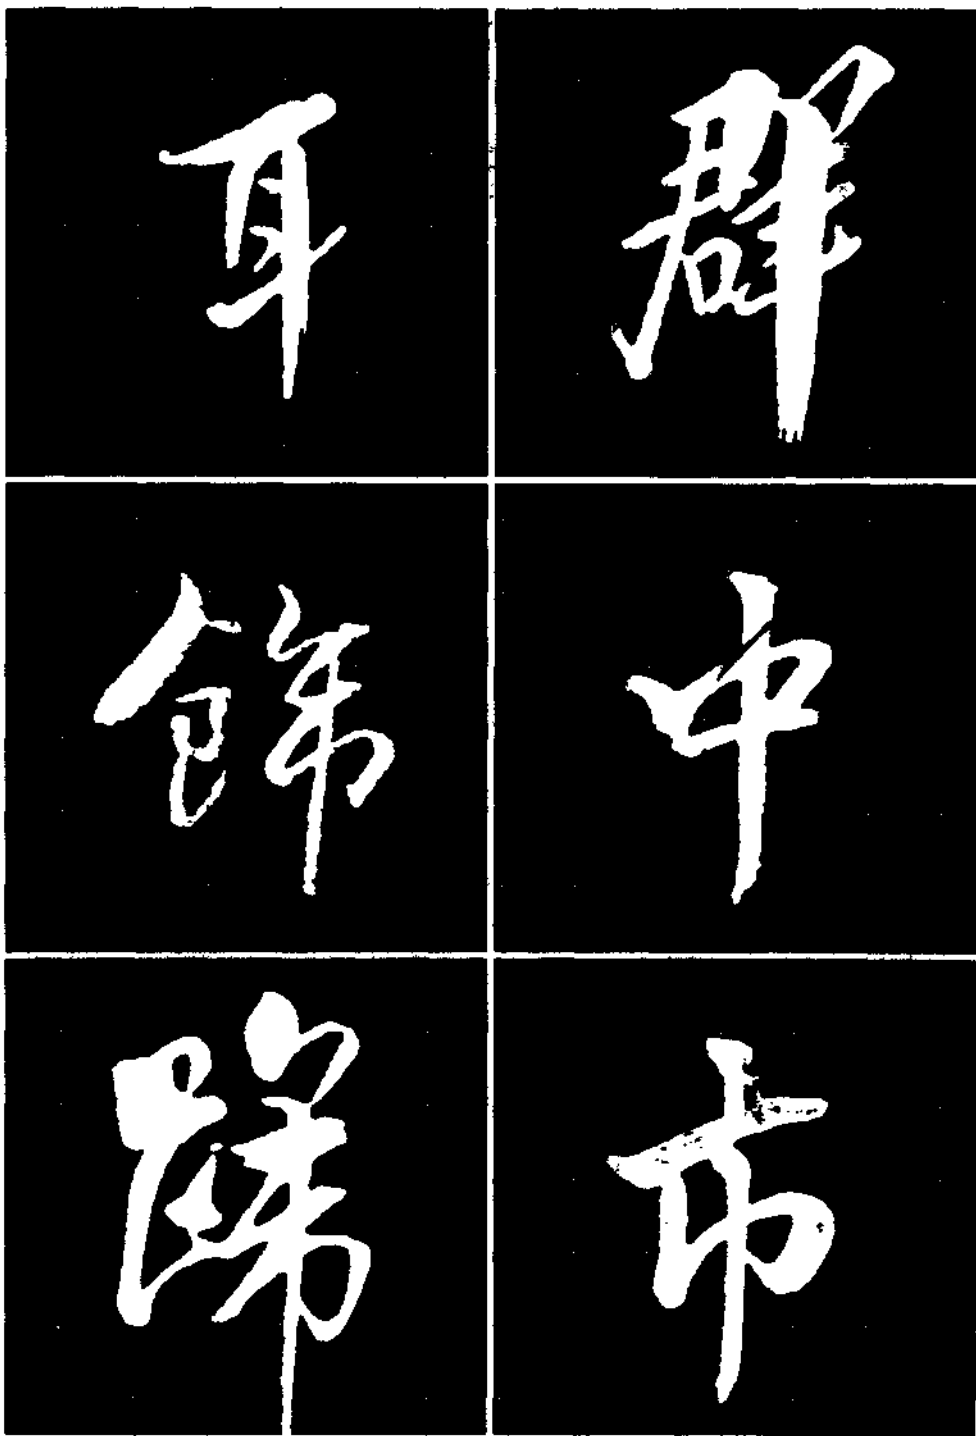 群中市
耳飾歸